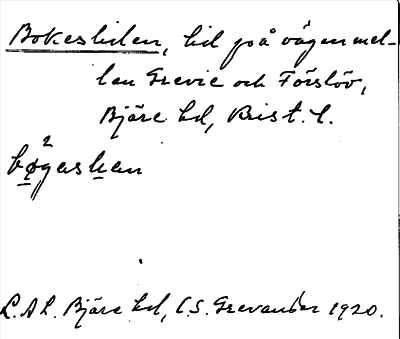 Bokeslilen, lid på vägen mel-
lan Grevie och Förslöv,
Bjäre hd, Krist. l.
L.A.L. Bjäre hd, C.S. Grevander 1920.